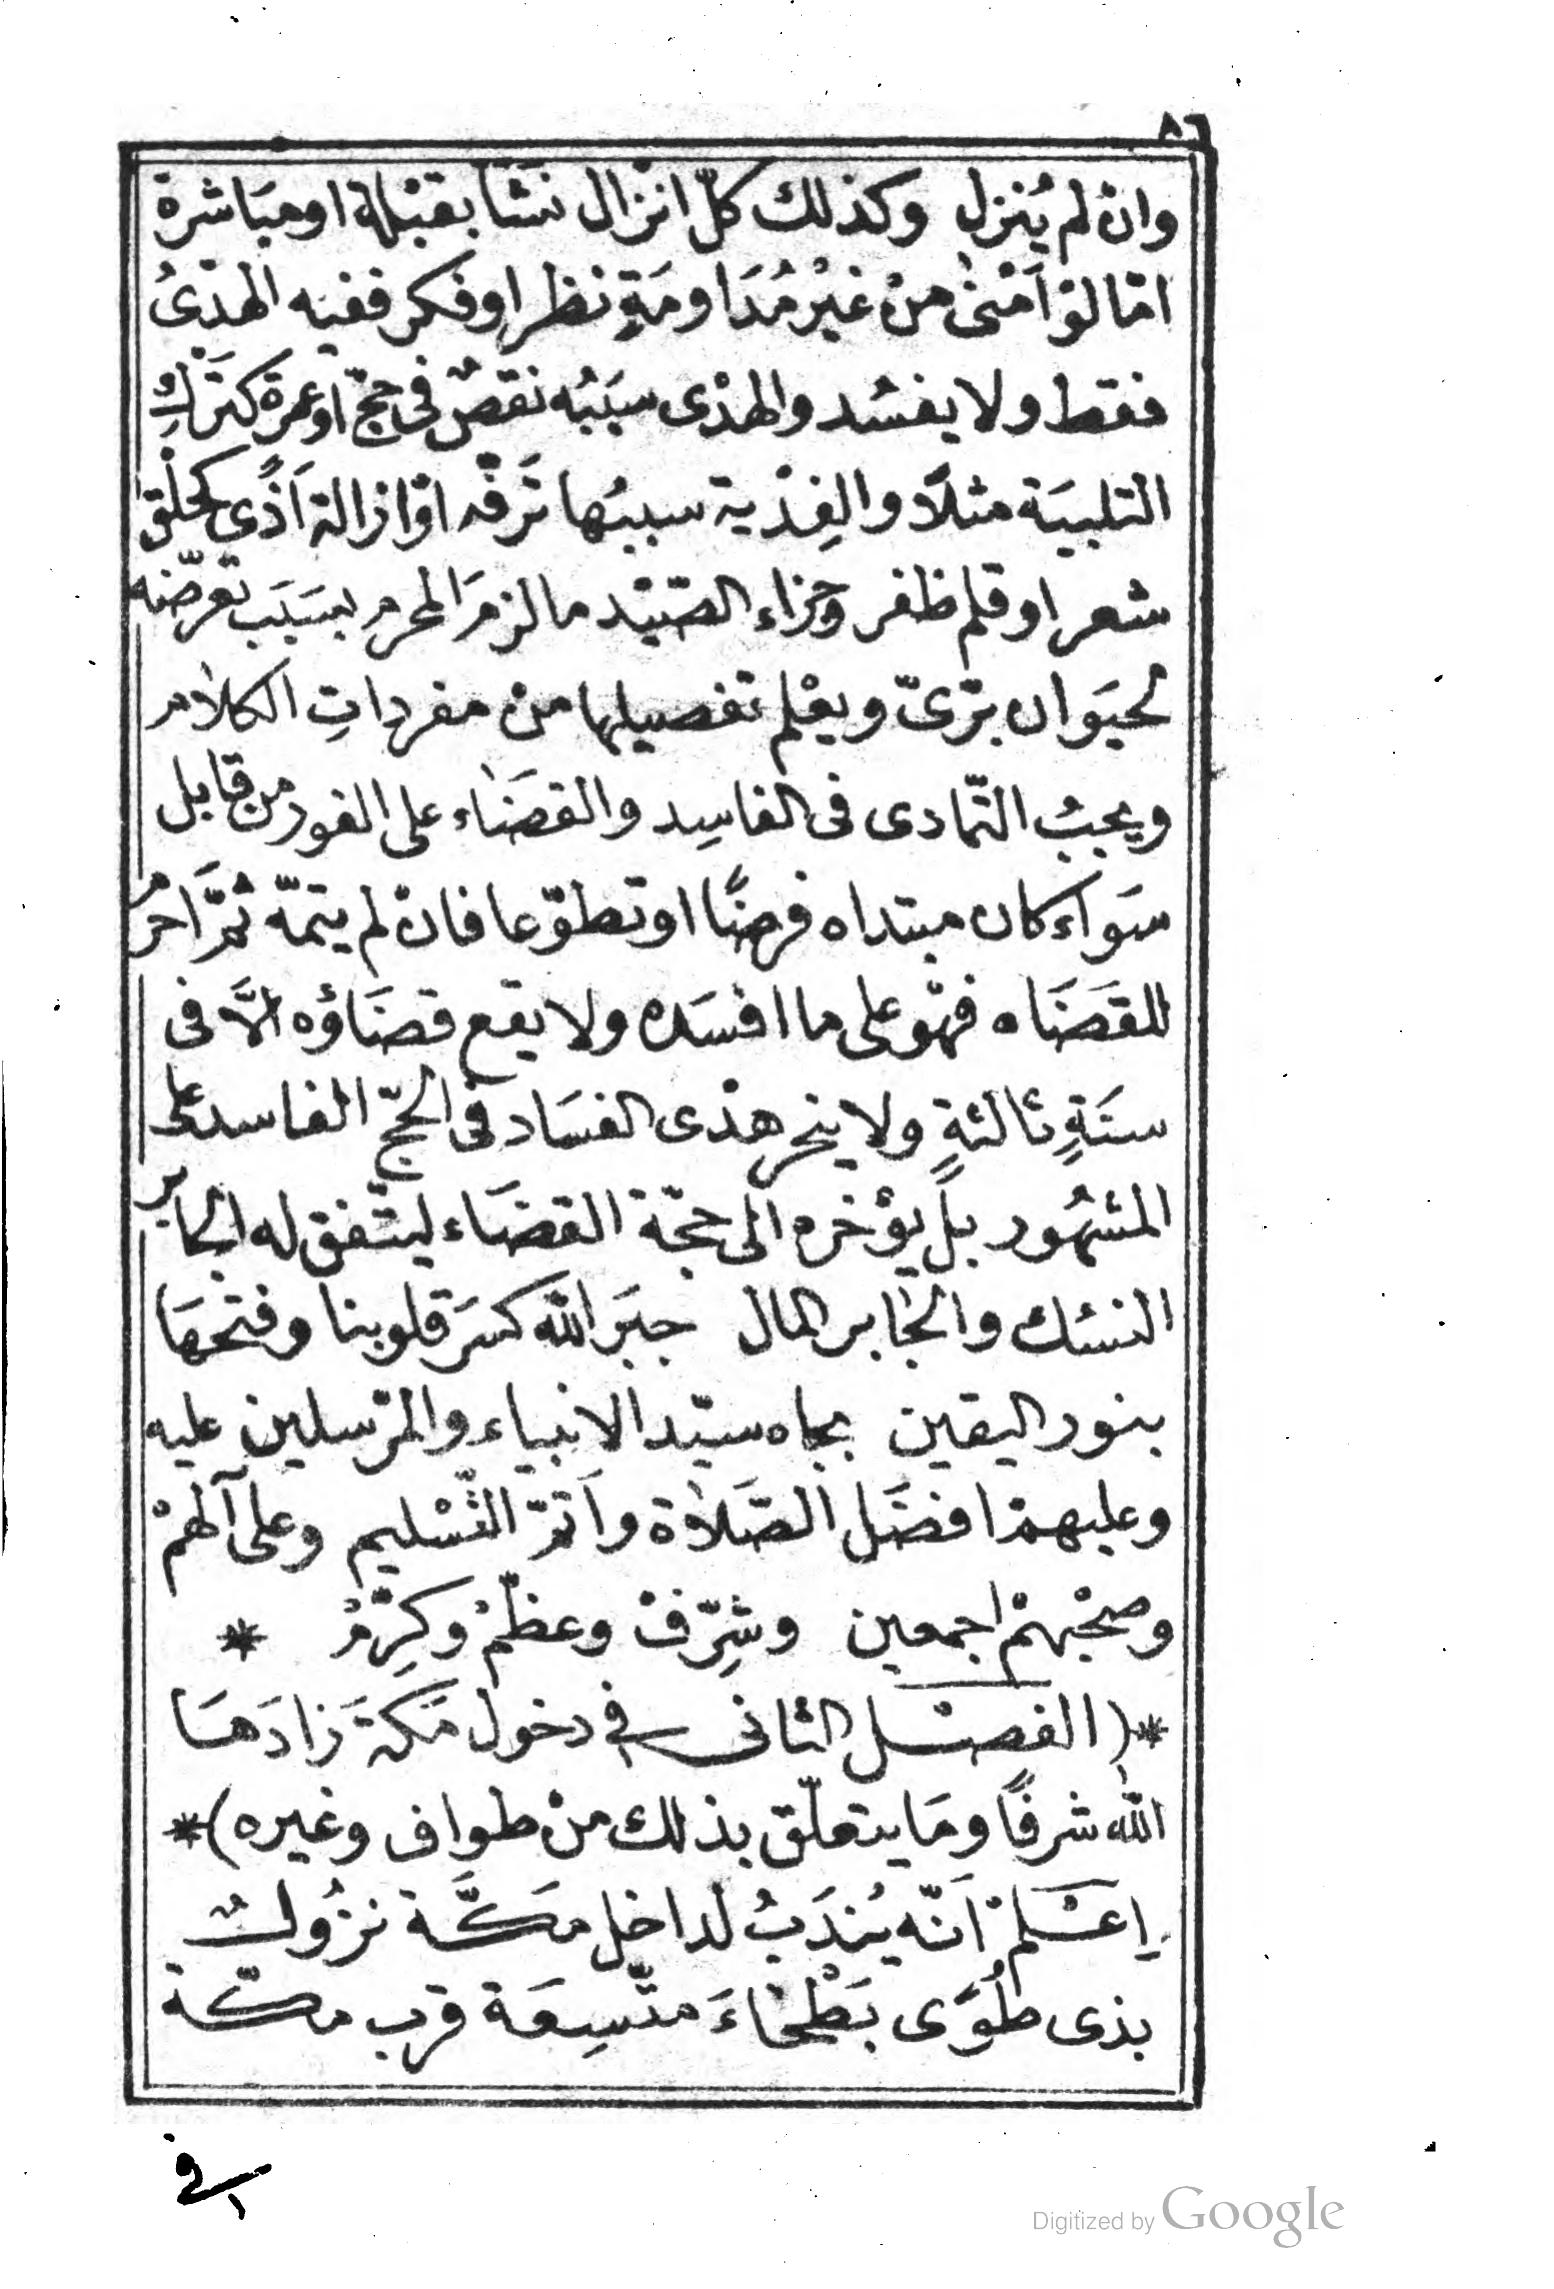 ٨٦
وانْ لم يُنزل وكذلك كلّ انْزال نشَأ بقبْلة او مبَاشرة
امّا لوْ اَمْنىٰ منْ غيْر مُدَاومَةٍ نظر او فكر ففيْه الهدْىُ
فقط ولا يفسُد والهدْى سبَبُه نقصٌ فى حجّ او عمرة كتَرْكِ
التلبيَة مثلًا والفِدْية سببُها تَرفّه اوْ ازالة اَذًى كحلْق
شعر او قلم ظفر وجزاء الصّيْد ما لزمَ المحرم بسبَب تعرّضه
لحيَوان برّىّ ويعْلم تفصيلها منْ مفرداتِ الكلام
ويجبُ التّمادى فى الفاسِد والقضَاء على الفور من قابل
سَواء كان مبتداه فرضًا او تطوّعا فانْ لم يتمّه ثمَّ احْرمَ
للقضَاء فهْو على ما افسَده ولا يقع قضَاؤه الَّا فى
سنَةٍ ثالثةٍ ولا ينحر هدْى الفسَاد فى الحجّ الفاسد على
المشهُور بلْ يؤْخره الى حجّة القضَاء ليتّفق له الجابر
النسُك والجَابر المال جبَر الله كسَر قلوبنا وفتحَهَا
بنور اليقين بجاه سيّد الانبياء والمرْسلين عليه
وعليهمْ افضَل الصّلَاة واَتمّ التّسْليم وعلى آلهمْ
وصحْبهمْ اجمعين وشرِّفْ وعظّمْ وكرِّمْ *
*(الفصْل الثانى فى دخول مَكة زادَهَا
الله شرفًا ومَا يتعلّق بذلك منْ طواف وغيره)*
اِعْلمْ اَنّه يُندَبُ لداخل مَكَّة نزُولٌ
بذى طُوًى بَطْحَاءَ متّسِعَة قرب مكّة
فى
Digitized by Google